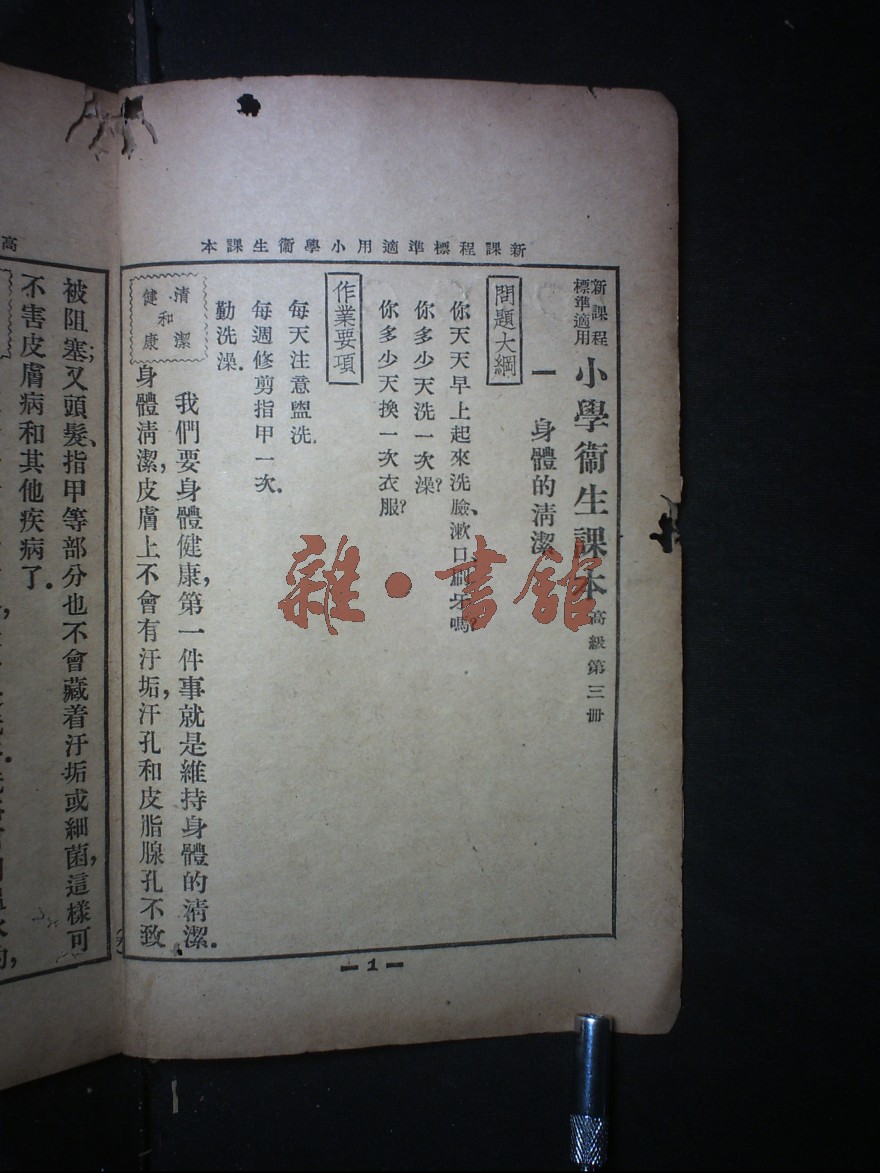 新課程標準適用小學衞生課本
新課程
標準適用
小學衞生課本 高級第三册
一 身體的清潔
問題大綱
你天天早上起來洗臉、漱口、刷牙嗎?
你多少天洗一次澡?
你多少天換一次衣服?
作業要項
每天注意盥洗.
每週修剪指甲一次.
勤洗澡.
清潔
和
健康
我們要身體健康,第一件事就是維持身體的清潔.
身體清潔,皮膚上不會有汙垢,汗孔和皮脂腺孔不致
1
高
被阻塞;又頭髮、指甲等部分也不會藏着汙垢或細菌,這樣可
不害皮膚病和其他疾病了.
雜·書館